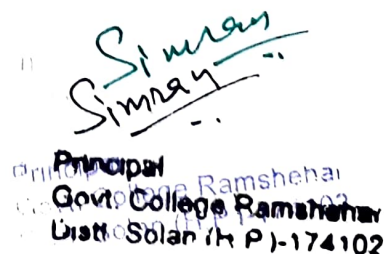 Simran
Simran
Principal
Govt. College Ramshehar
Distt. Solan (H P)-174102